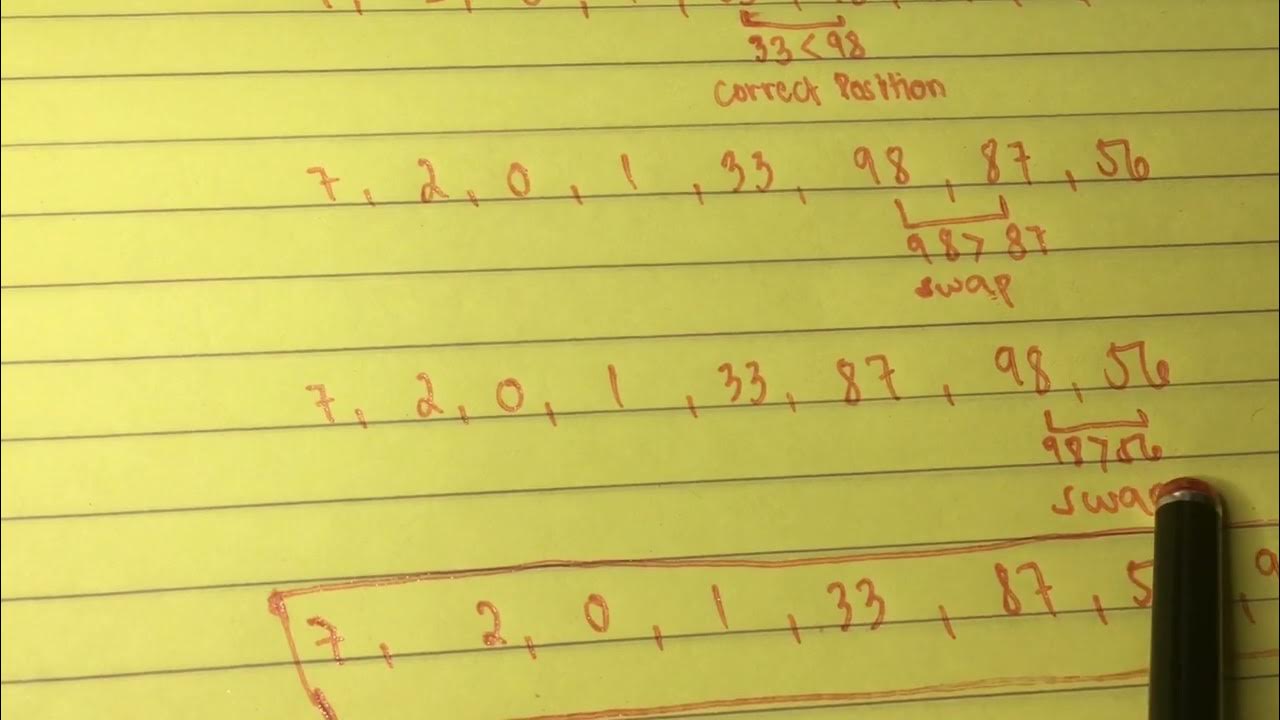 33 < 98
Correct Position
7, 2, 0, 1, 33, 98, 87, 56
98 > 87
swap
7, 2, 0, 1, 33, 87, 98, 56
98 > 56
7, 2, 0, 1, 33, 87,